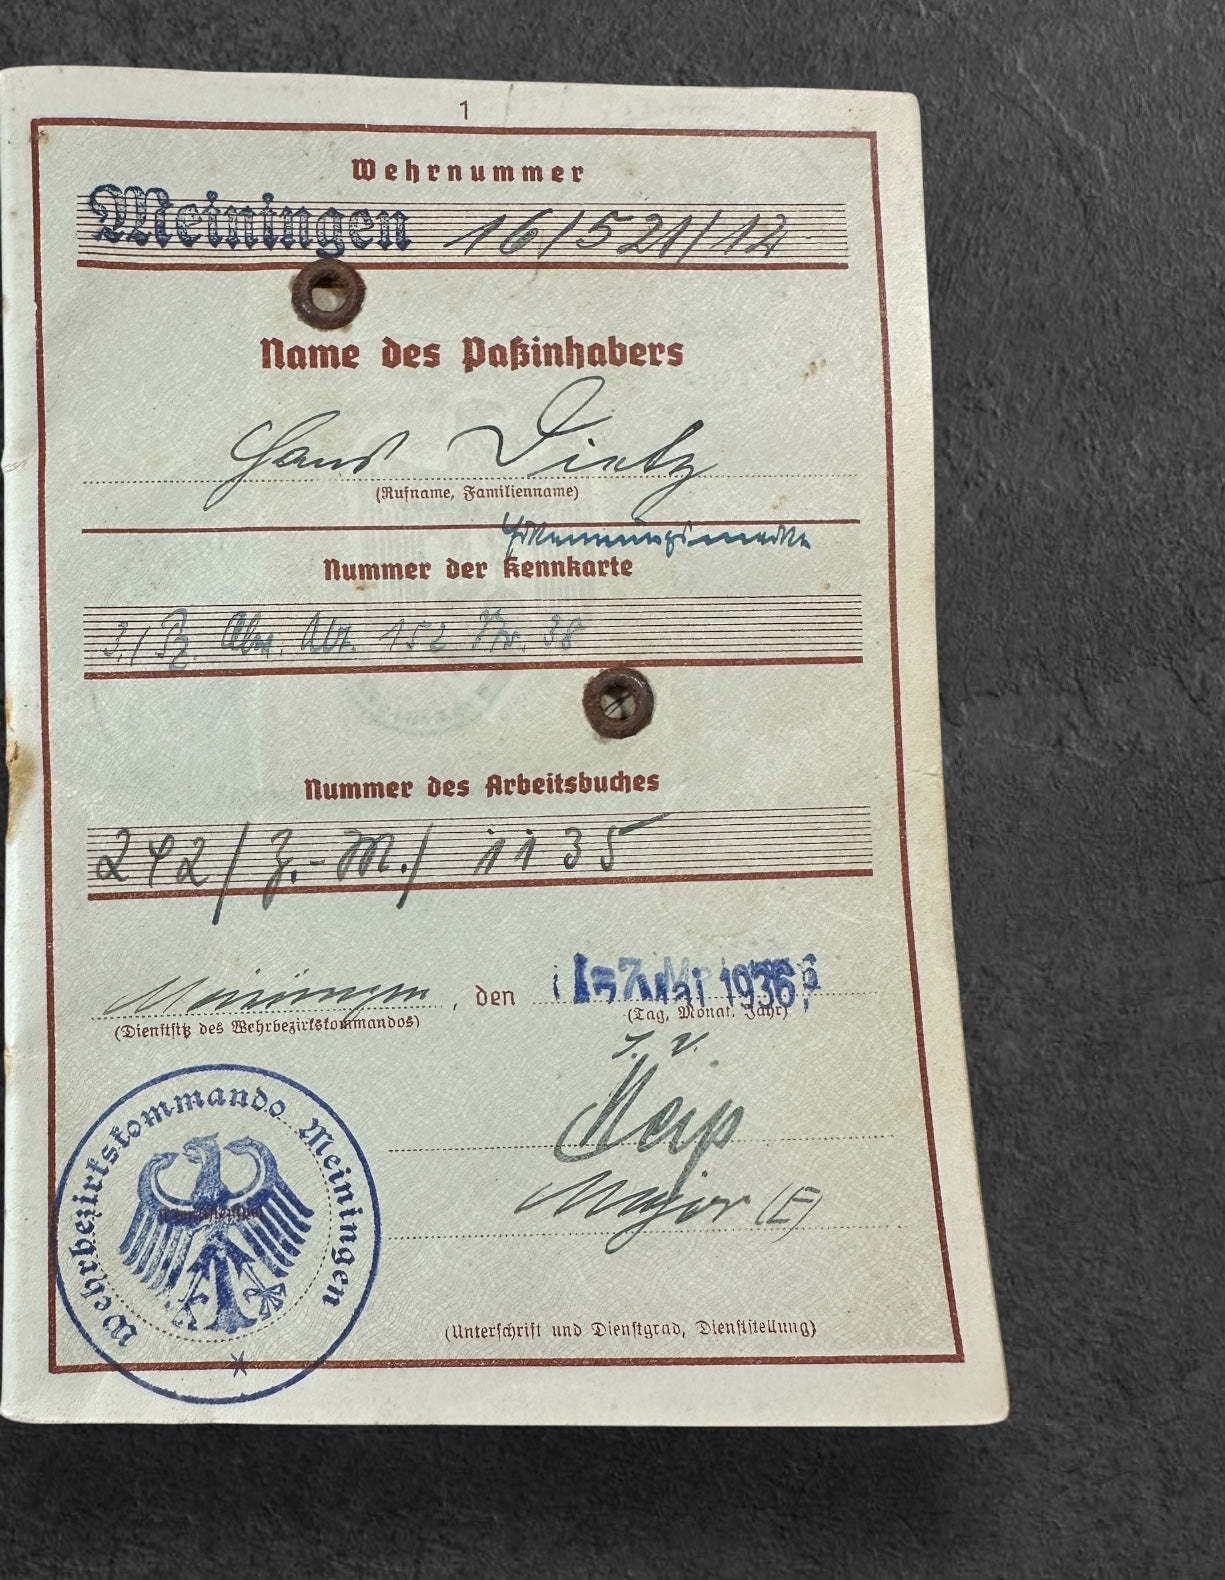 1
Wehrnummer
Meiningen 16/521/12
Name des Paßinhabers
Hans Dietz
(Rufname, Familienname)
Erkennungsmarke
Nummer der Kennkarte
3./Pz. Abw. Abt. 152 Nr. 38
Nummer des Arbeitsbuches
242/Z.-M./1135
Meiningen, den Mai 1936
(Dienstsitz des Wehrbezirkskommandos) (Tag, Monat, Jahr)
J. V.
Major (E)
Wehrbezirkskommando Meiningen
(Unterschrift und Dienstgrad, Dienststellung)